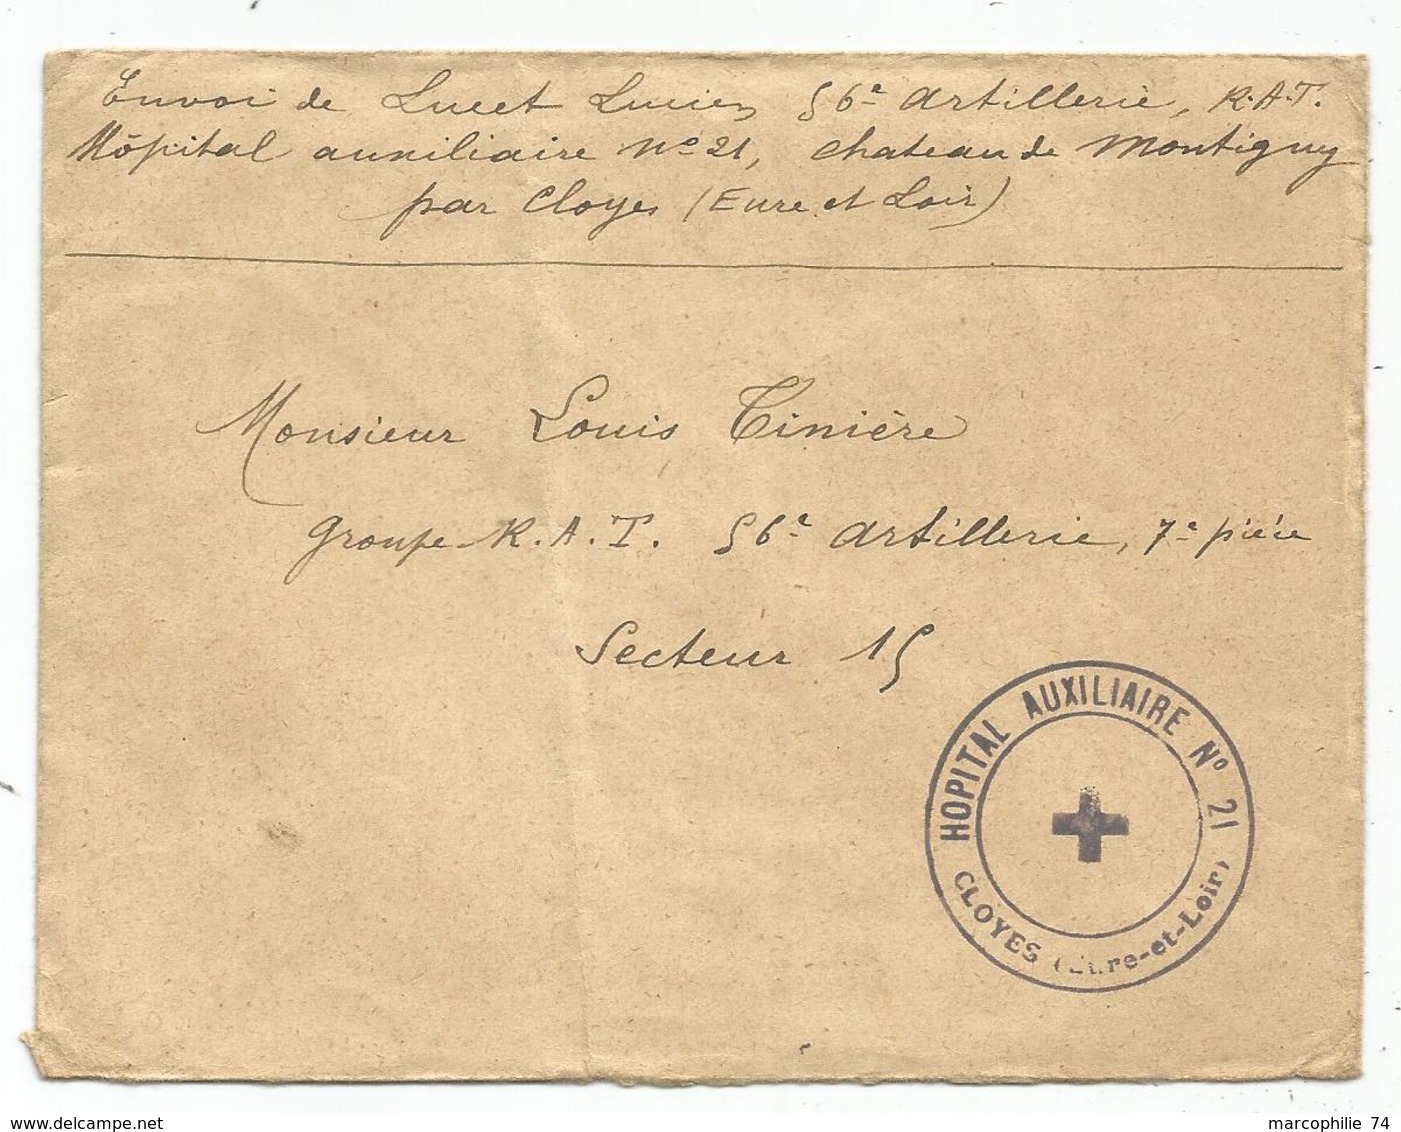 Envoi de Lucet Lucien, 56e Artillerie, R.A.T.
Hôpital auxiliaire No 21, chateau de Montigny
par Cloyes (Eure et Loir)
Monsieur Louis Tinière
groupe R.A.T. 56e Artillerie, 7e pièce
Secteur 15
HOPITAL AUXILIAIRE No 21
CLOYES (Eure-et-Loir)
www.delcampe.net
marcophilie 74